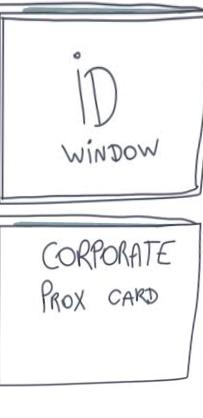 iD
WiNDOW
CORPORATE
PROX CARD